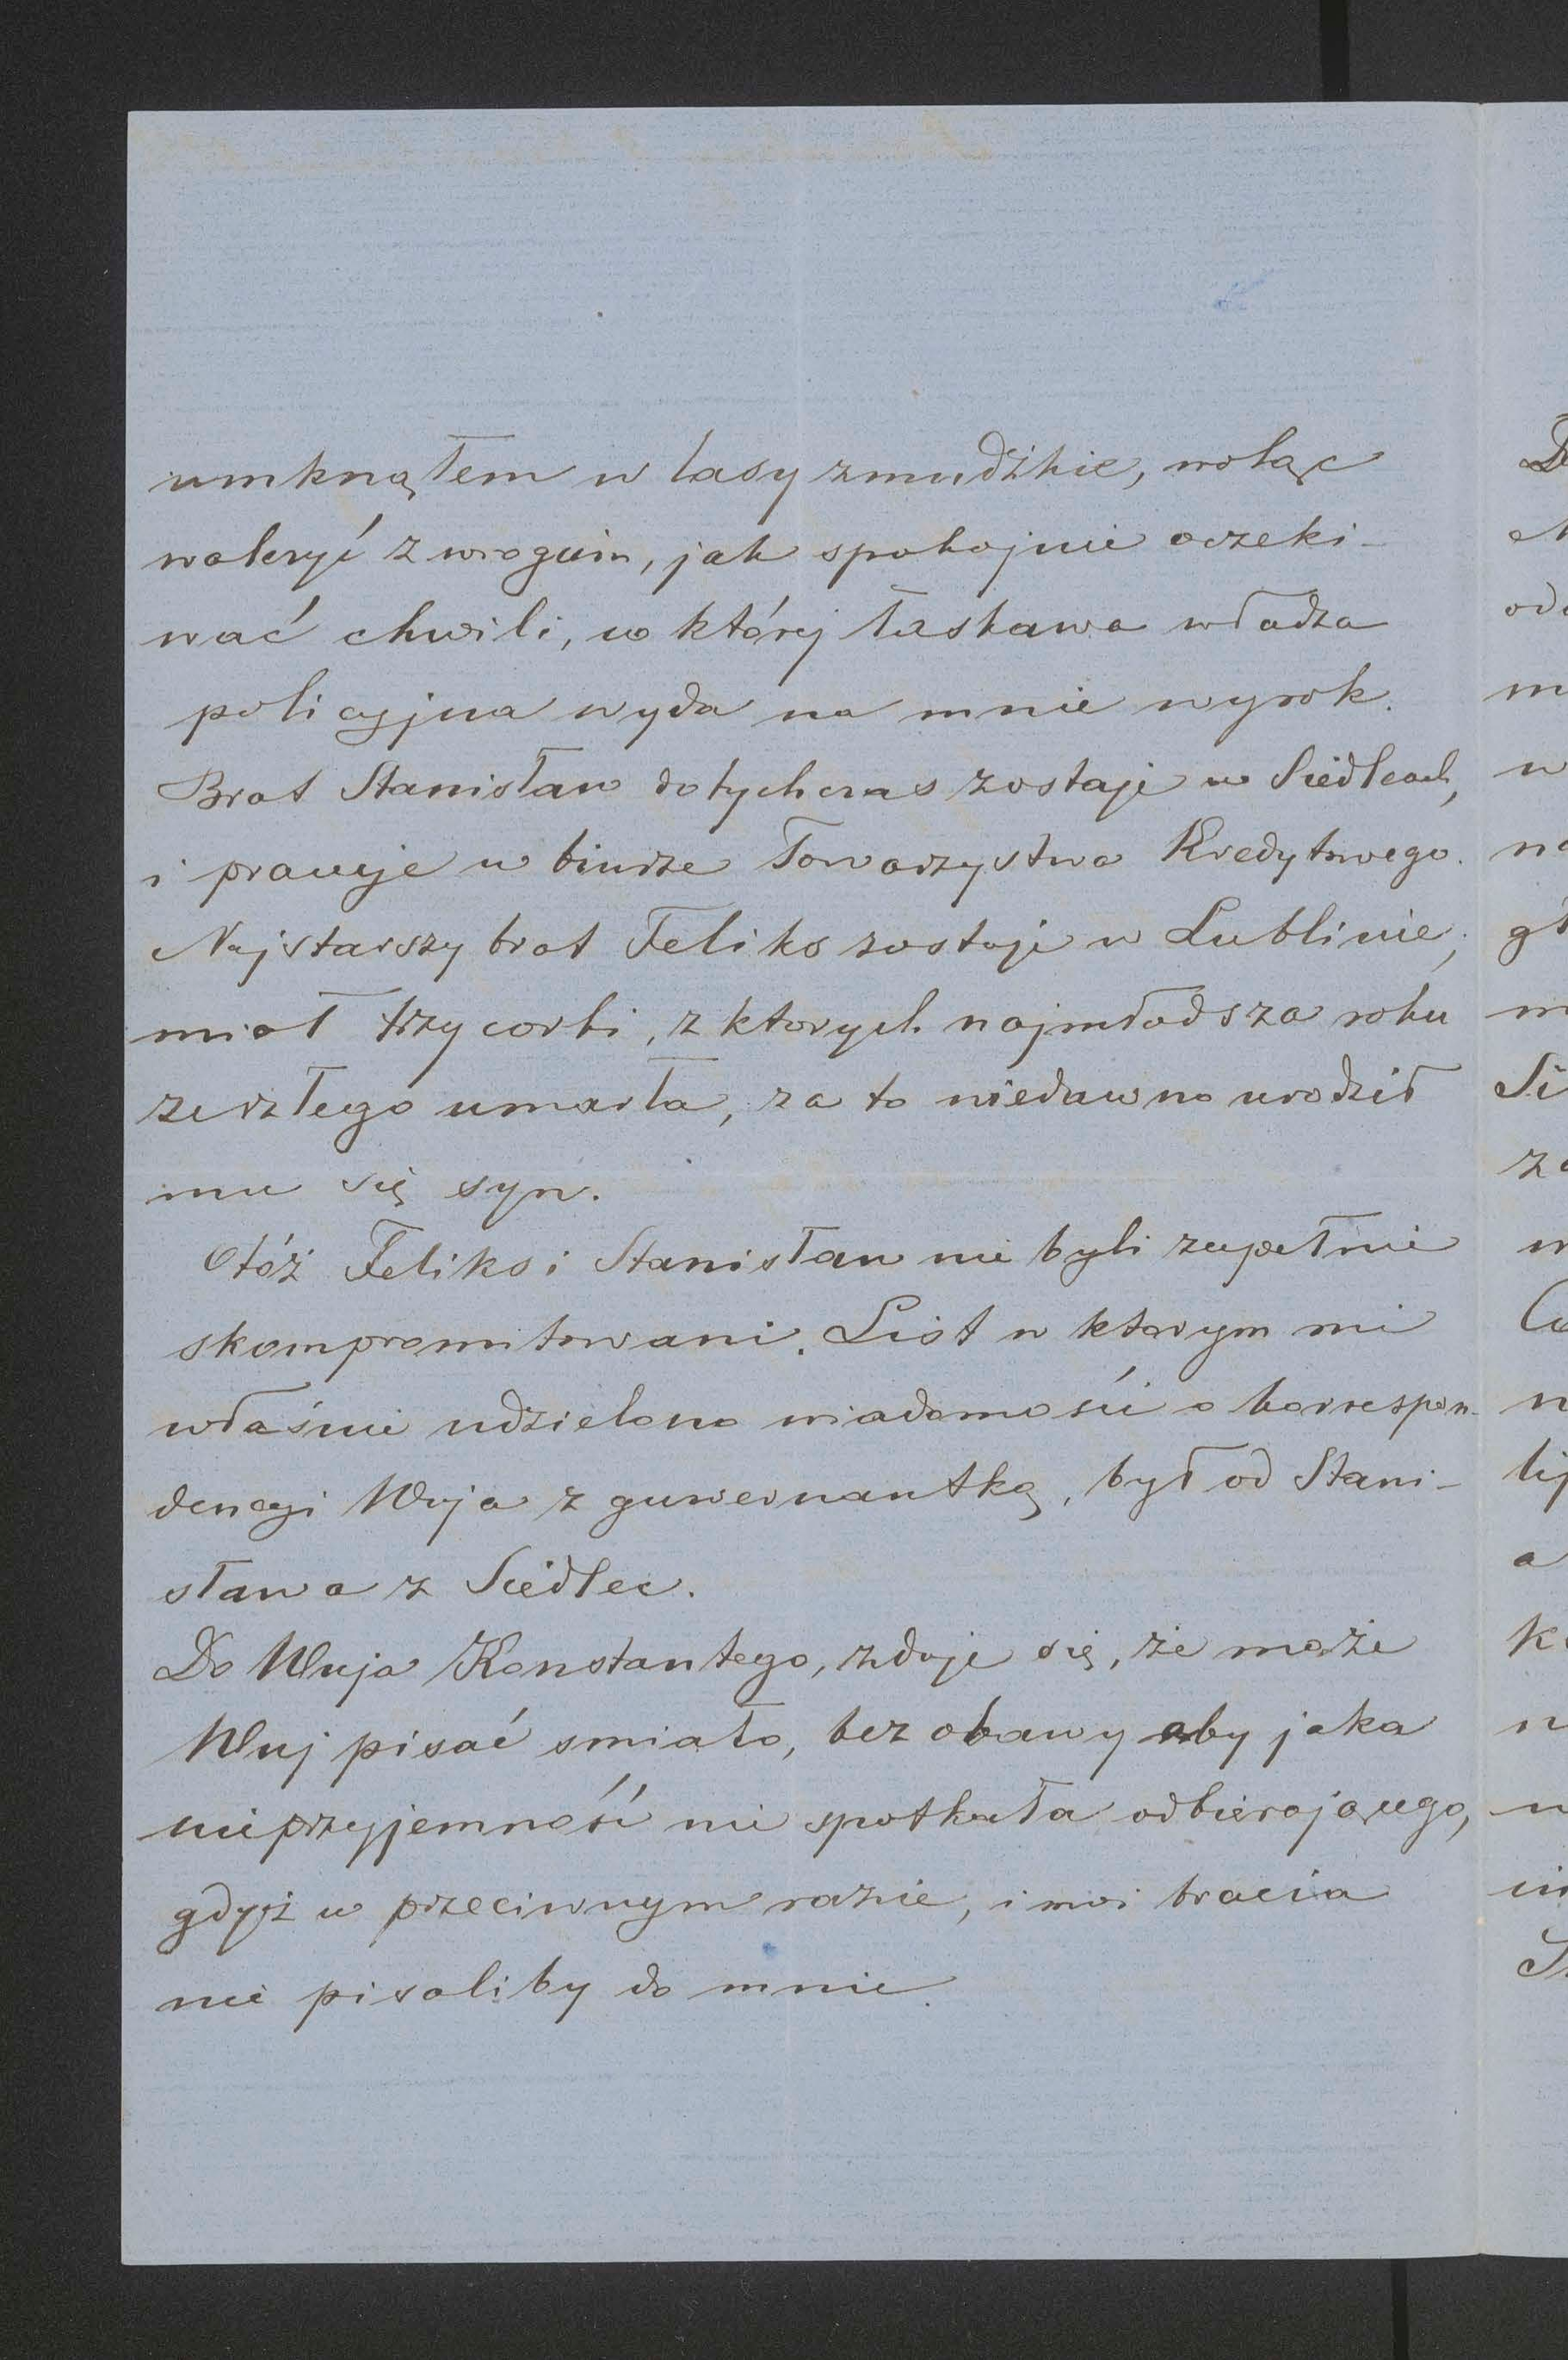 umknąłem w lasy zmudźkie, woląc
walczyć z wrogiem, jak spokojnie oczeki-
wać chwili, w któréj łaskawa władza
policyjna wyda na mnie wyrok.
Brat Stanisław dotychczas zostaje w Siedlcach,
i pracuje w biurze Towarzystwa Kredytowego.
Najstarszy brat Feliks zostaje w Lublinie;
miał trzy corki, z ktorych najmłodsza roku
zeszłego umarła, za to niedawno urodził
mu się syn.
Otóż Feliks i Stanisław nie byli zupełnie
skompromitowani. List w ktorym mi
właśnie udzielono wiadomości o korrespon-
dencyi Wuja z guwernantką, był od Stani-
sława z Siedlec.
Do Wuja Konstantego, zdaje się, że może
Wuj pisać smiało, bez obawy aby jaka
nieprzyjemność nie spotkała odbierającego,
gdyż w przeciwnym razie, i moi bracia
nie pisaliby do mnie.